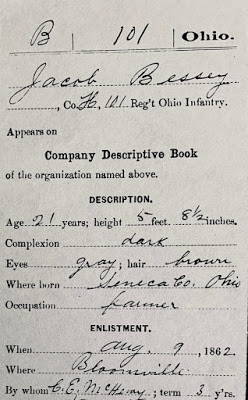 B | 101 | Ohio.
Jacob Bessey
, Co. H, 101 Reg't Ohio Infantry.
Appears on
Company Descriptive Book
of the organization named above.
DESCRIPTION.
Age 21 years; height 5 feet 8½ inches.
Complexion dark
Eyes gray; hair brown
Where born Seneca Co. Ohio
Occupation farmer
ENLISTMENT.
When Aug. 9, 1862.
Where Bloomville
By whom C. E. McHenry; term 3 y'rs.